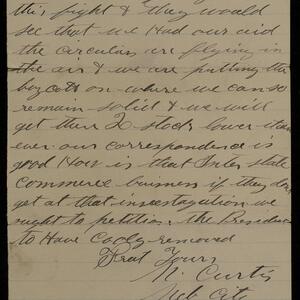 this fight & they would
see that we Had our aid
the circulars are flying in
the air & we are putting the
boycott on where we can so
remain solid & we will
get there stock lower than
ever our correspondence is
good How is that Inter state
Commerce buisness if they dont
get at that investagation we
ought to petition the President
to Have Cooly removed
Frat Yours
N. Curtis
Neb City